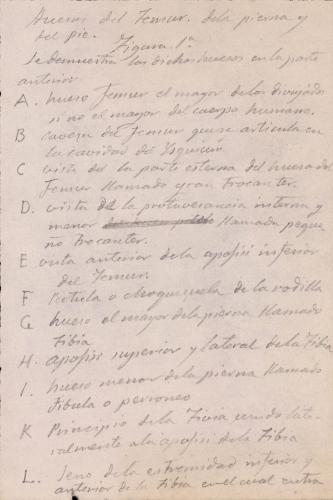 Huesos del Femur. de la pierna y
del pie.
Figura 1ª
Se demuestra los dichos huesos en la parte
anterior.
A. hueso femur el mayor de los dibujados
si no el mayor del cuerpo humano.
B caveza del Femur que se articula en
la cavidad del Ysquium.
C vista de la parte esterna del hueso del
Femur llamado gran Trocanter.
D. vista de la protuverancia interna y
menor llamada peque
ño Trocanter.
E vista anterior de la apofisi inferior
del Femur.
F Rotula o choquezuela de la rodilla
G hueso el mayor de la pierna llamado
Tibia
H. apofisis superior y lateral de la Tibia
I. hueso menor de la pierna llamado
Fibula o peroneo
K Principio de la Fivia unido late-
ralmente a la apofisi de la Tibia
L. Seno de la estremidad inferior y
anterior de la Tibia en el cual entra